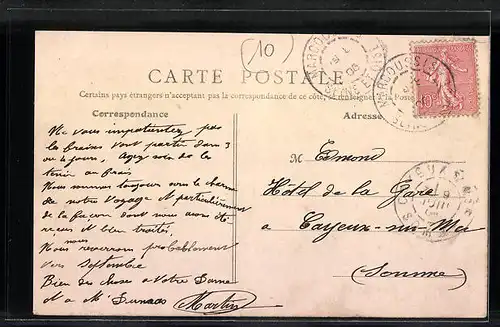 (10)
MARCOUSSIS
SEINE ET OISE
CARTE POSTALE
Certains pays étrangers n'acceptant pas la correspondance de ce côté, se renseigner à la Poste
Correspondance
Adresse
Ne vous impatientez pas
les fraises vont partir dans 3
ou 4 jours, ayez soin de la
tenir au frais
Nous sommes toujours sous le charme
de notre voyage et particulièrement
de la façon dont nous avons été
reçus et bien traités,
nous
Nous reverrons probablement
vers Septembre
Bien des chose a Votre Dame
et a Mr
Martin
M. Edmond
Hôtel de la Gare
a Cayeux-sur-Mer
(Somme)